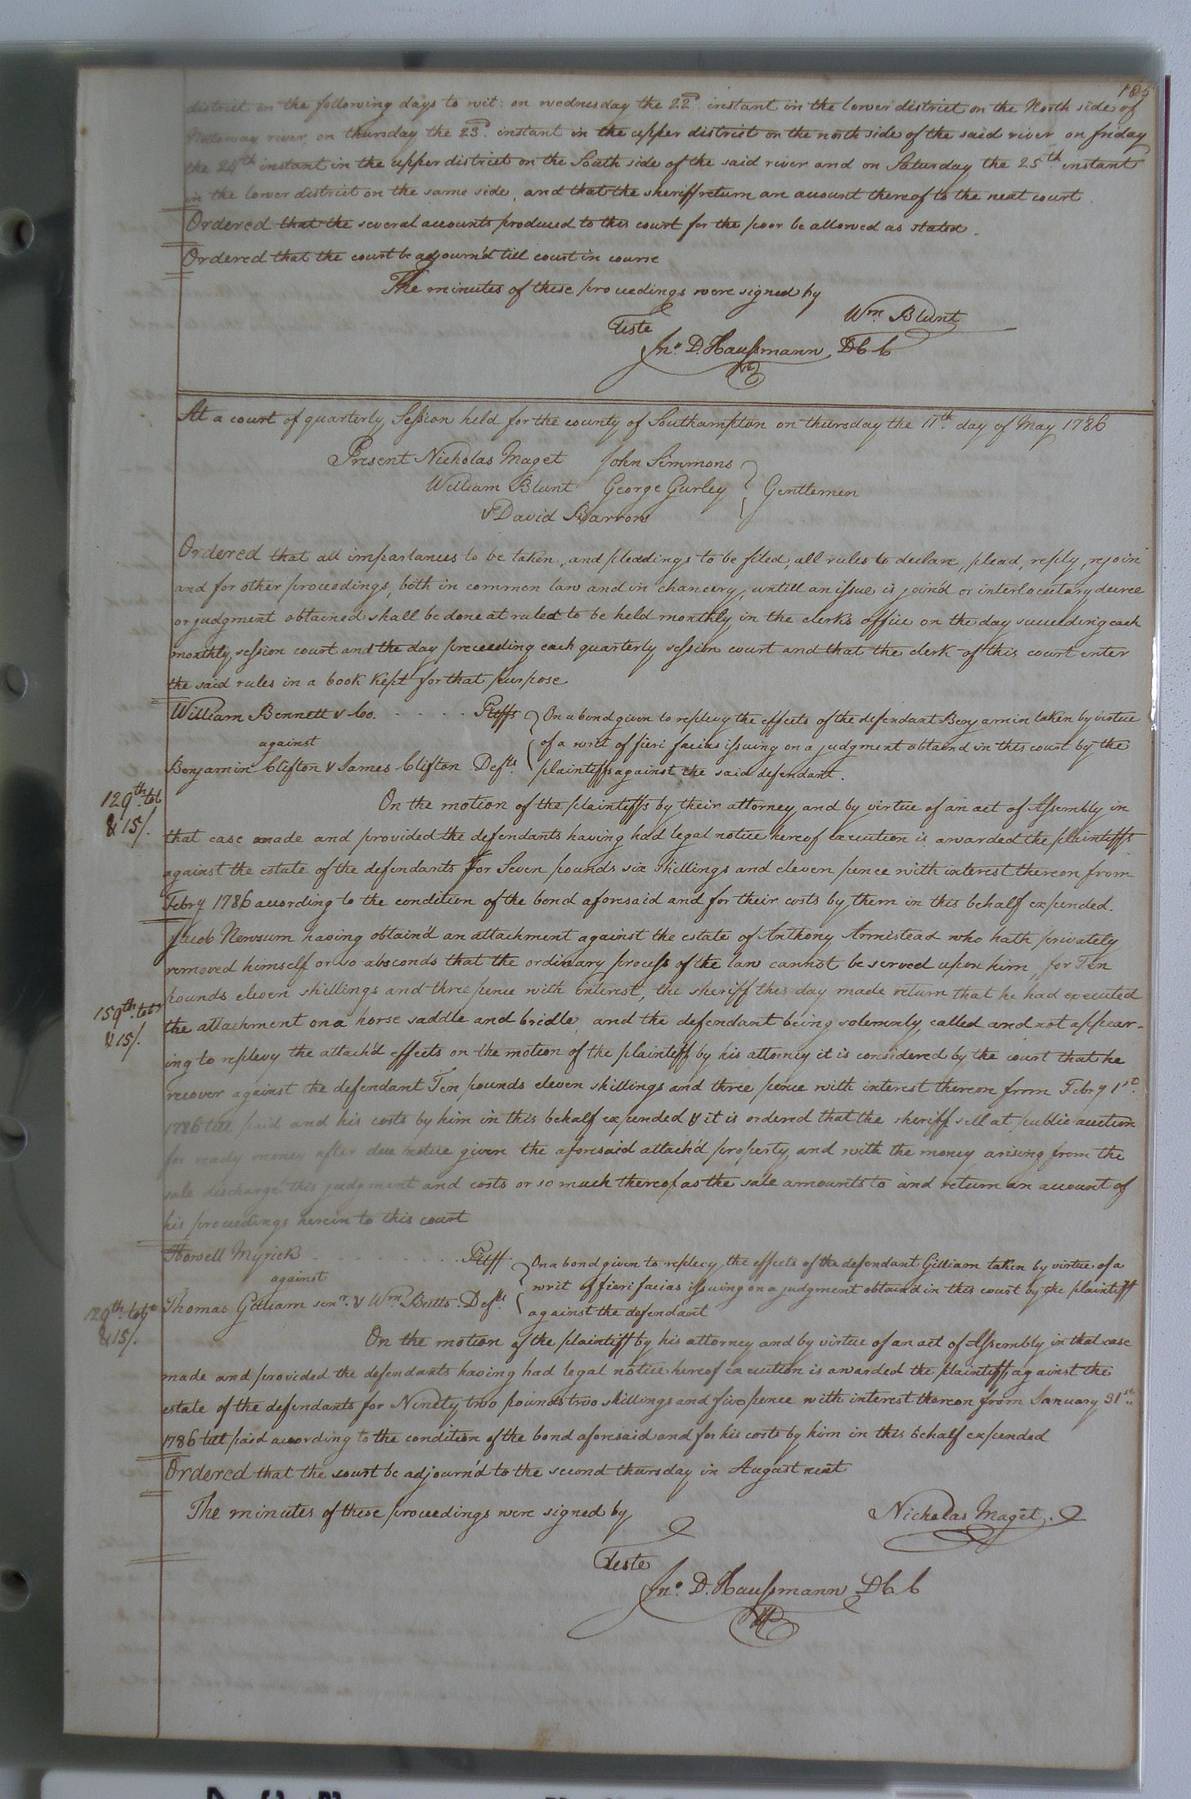 185
district in the following days to wit: on wednesday the 22d. instant in the lower district on the North side of
Nottoway river, on thursday the 23d. instant in the upper district on the north side of the said river on friday
the 24th instant in the upper district on the South side of the said river and on Saturday the 25th instant
in the lower district on the same side, and that the sheriff return an account thereof to the next court.
Ordered that the several accounts produced to this court for the poor be allowed as stated.
Ordered that the court be adjourn'd till court in course
The minutes of these proceedings were signed by
Wm. Blunt
Teste
Jno. D. Haussmann DCC
At a court of quarterly Session held for the county of Southampton on thursday the 11th. day of May 1786
Present Nicholas Maget John Simmons
William Blunt George Gurley } Gentlemen
& David Barrow
Ordered that all imparlances to be taken, and pleadings to be filed, all rules to declare, plead, reply, rejoin
and for other proceedings, both in common law and in chancery, untill an issue is join'd or interlocutory decree
or judgment obtained shall be done at rules to be held monthly in the clerks office on the day succeeding each
monthly session court and the day preceeding each quarterly session court and that the clerk of this court enter
the said rules in a book kept for that purpose
William Bennett & Co. . . . . . Pltffs } On a bond given to replevy the effects of the defendant Benjamin taken by virtue
against of a writ of fieri facias issuing on a judgment obtaind in this court by the
Benjamin Clifton & James Clifton Defts. plaintiffs against the said defendant.
On the motion of the plaintiffs by their attorney and by virtue of an act of Assembly in
that case made and provided the defendants having had legal notice hereof execution is awarded the plaintiffs
& 15/.
against the estate of the defendants for Seven pounds six shillings and eleven pence with interest thereon from
Febry 1786 according to the condition of the bond aforesaid and for their costs by them in this behalf expended.
Jacob Newsum having obtain'd an attachment against the estate of Anthony Armistead who hath privately
removed himself or so absconds that the ordinary process of the law cannot be served upon him, for Ten
pounds eleven shillings and three pence with interest, the sheriff this day made return that he had executed
the attachment on a horse saddle and bridle, and the defendant being solemnly called and not appear-
& 15/.
ing to replevy the attach'd effects on the motion of the plaintiff by his attorney it is considered by the court that he
recover against the defendant Ten pounds eleven shillings and three pence with interest thereon from Febry 1st.
1786 till paid and his costs by him in this behalf expended & it is ordered that the sheriff sell at public auction
for ready money after due notice given the aforesaid attach'd property and with the money arising from the
sale discharge this judgment and costs or so much thereof as the sale amounts to and return an account of
his proceedings herein to this court
Howell Myrick . . . . . . . . Pltff. } On a bond given to replevy the effects of the defendant Gilliam taken by virtue of a
against writ of fieri facias issuing on a judgment obtaind in this court by the plaintiff
Thomas Gilliam senr. & Wm. Britts Defts against the defendant
& 15/.
On the motion of the plaintiff by his attorney and by virtue of an act of Assembly in that case
made and provided the defendants having had legal notice hereof execution is awarded the plaintiff against the
estate of the defendants for Ninety two pounds two shillings and five pence with interest thereon from January 31st.
1786 till paid according to the condition of the bond aforesaid and for his costs by him in this behalf expended
Ordered that the court be adjourn'd to the second thursday in August next
The minutes of these proceedings were signed by Nicholas Maget.
Teste
Jno. D. Haussmann DCC